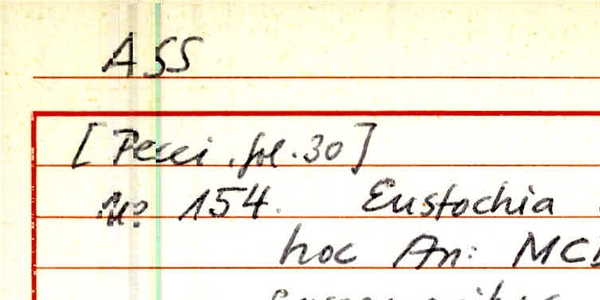 ASS
[Pecci, fol. 30]
No 154. Eustochia
hoc An: MCD